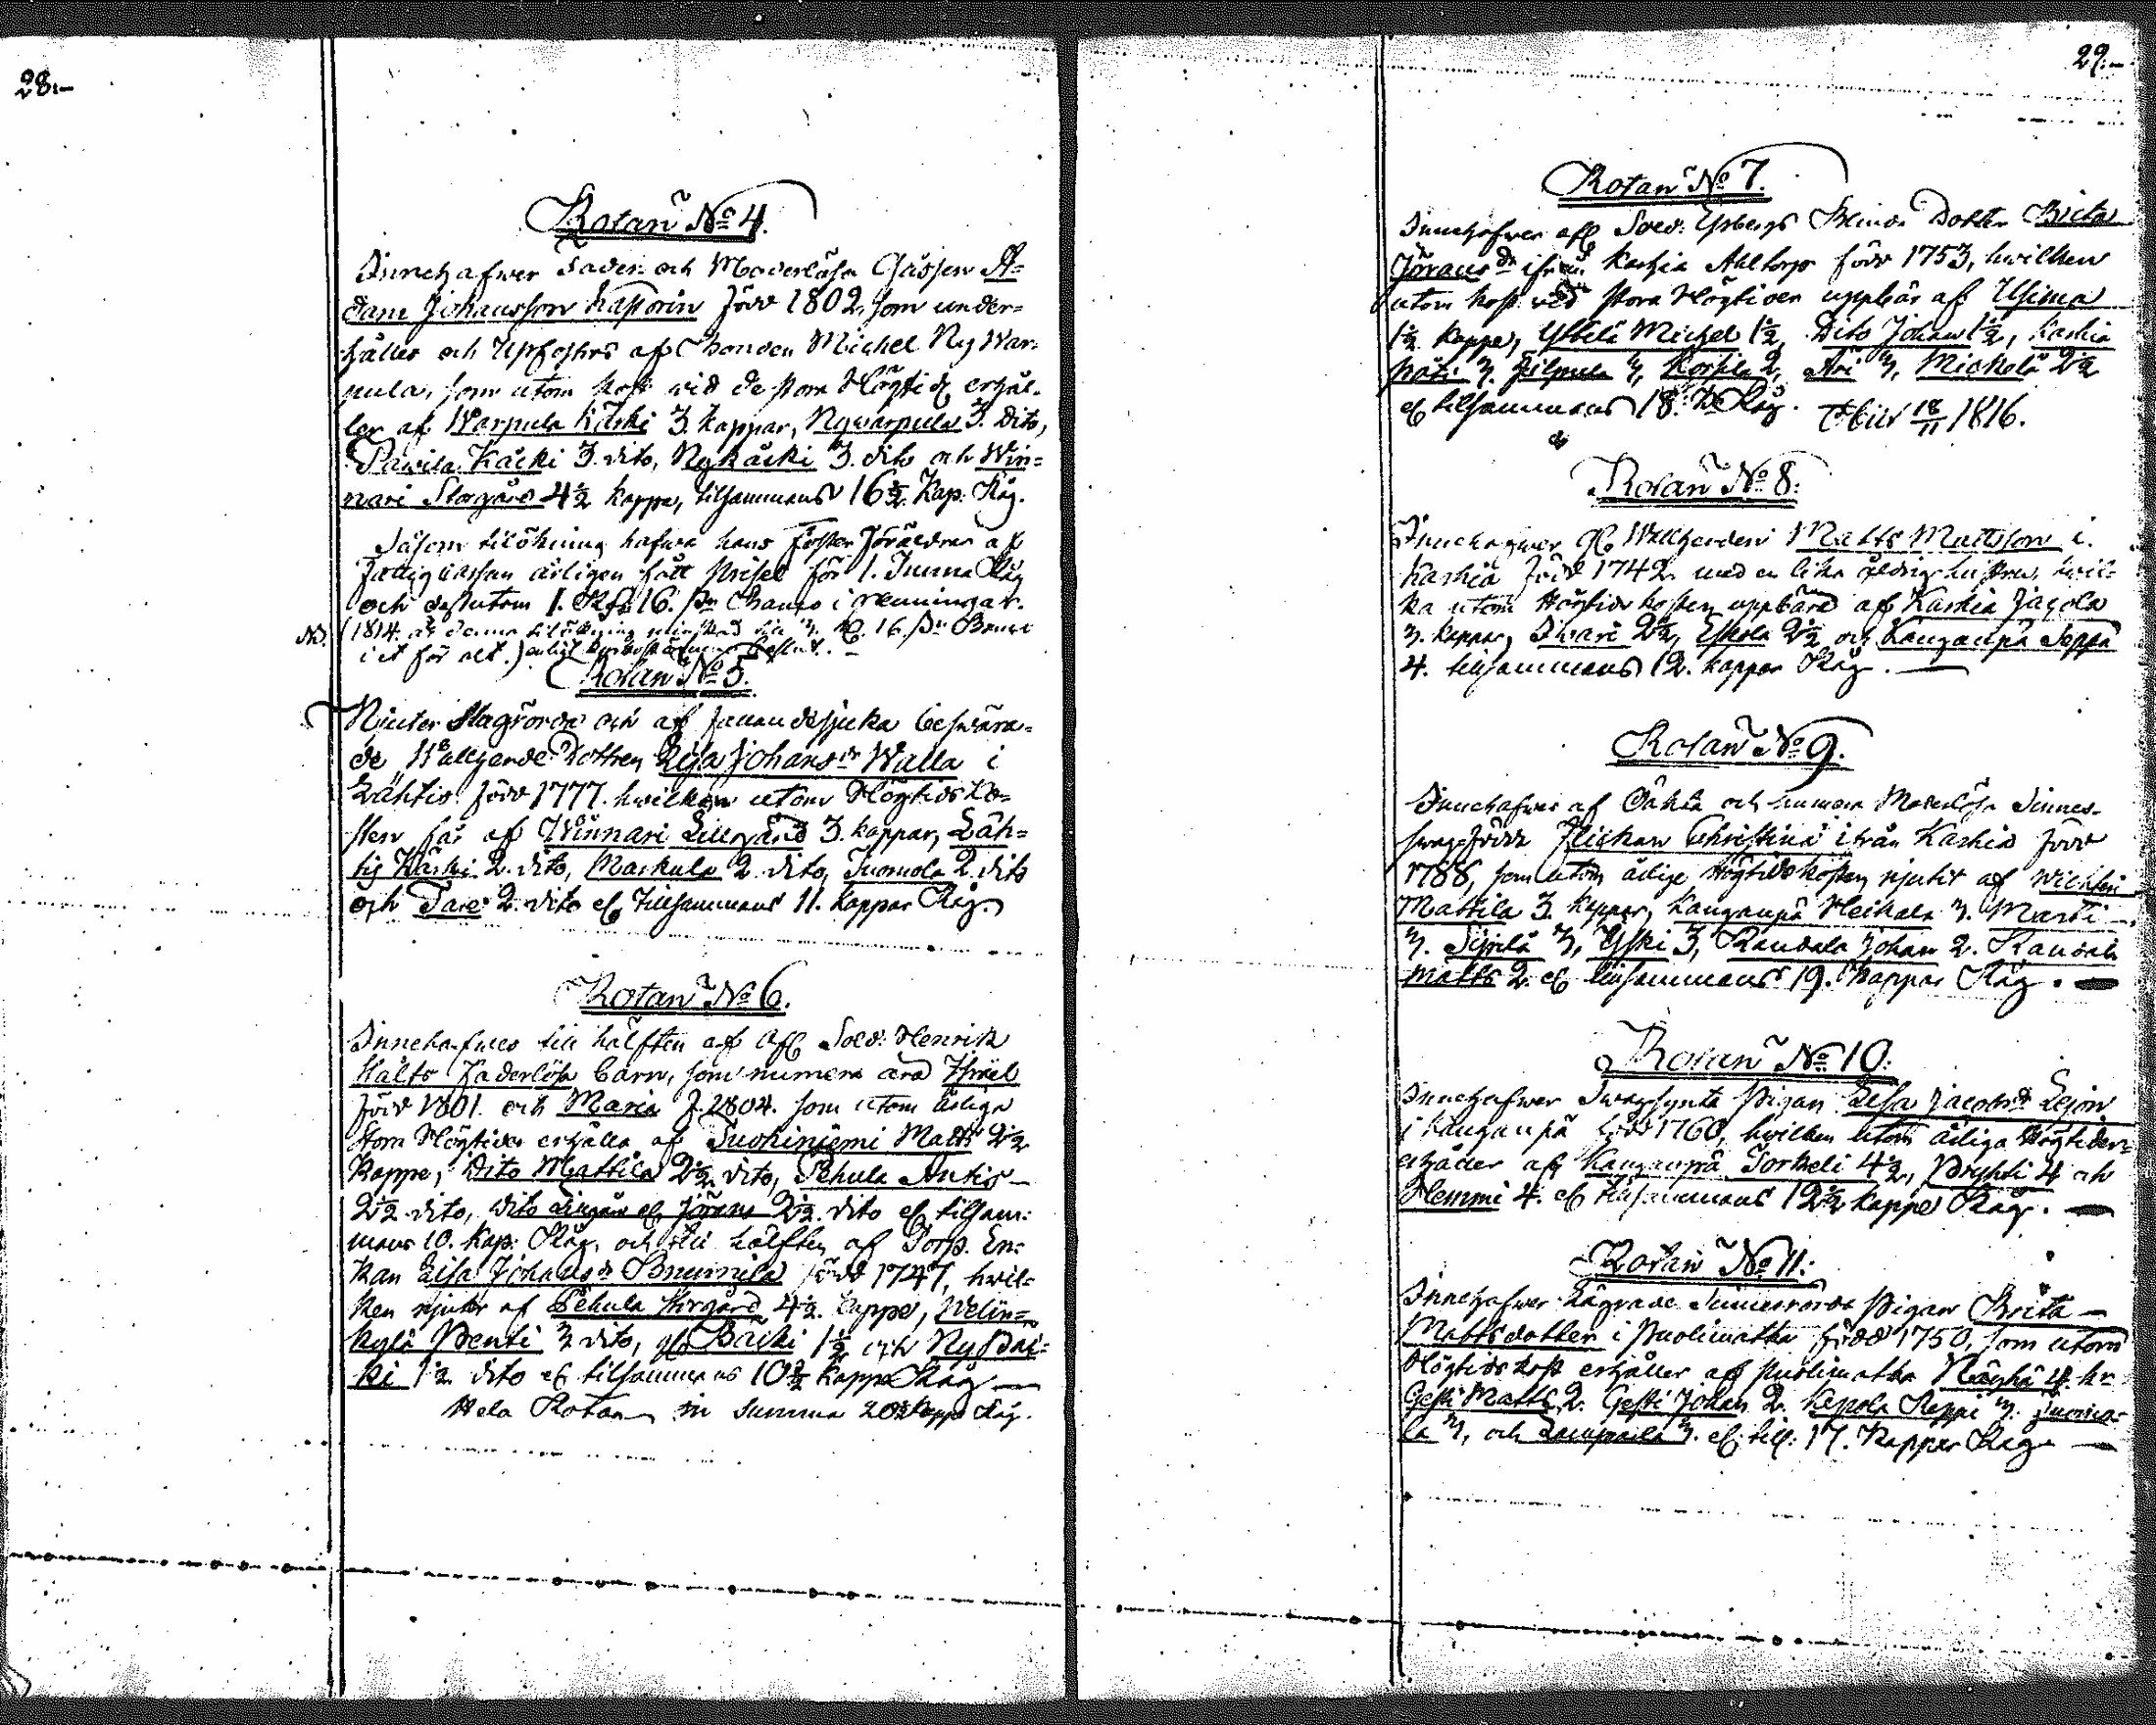 28.
Rotan No 4.
Innehafwer Fader- och Moderlösa Gåssen A=
dam Johansson Kastorin född 1802, som under=
hålles och Upfostras af bonden Michel Ny War=
pula, som utom kost vid de stora Högtid erhål-
ler af Warpula Käcki 3. kappar, Nywarpula 3. dito,
Pawila Käcki 3. dito, Nykäcki 3. dito och Win=
nari Storgård 4½ kappe, tilsammans 16½ Kap: Råg.
Såsom tilökning hafwa hans Foster Föräldrar af
Fattigcassan årligen fått priset för 1. Tunna Råg
och dessutom 1. Rd 16. sk Banco i
1814. är denna tilökning minskad till 3. Rd. 16. sk Banco
i et för alt.) enligt
Rotan No 5.
Njuter Slagrörda och af fallandesjuka beswära=
de Wallgende Dottren Lisa Johansdr Walla i
Lähtis född 1777. hwilken utom Högtids Ko=
sten får af Winnari Lillgård 3. kappar, Läh=
tis Käcki 2. dito, Maskula 2. dito, Tuomola 2. dito
och Tare 2. dito el. Tillsammans 11. kappar Råg.
Rotan No 6.
Innehafwes till hälften af Afl. Sold: Henrik
Hålts Faderlösa barn, som numera äro Israel
född 1801. och Maria f. 1804. som utom årliga
stora Högtider erhålla af Suokiniemi Matts 2½
kappe, Dito Mattila 2½ dito, Pehula Antis
2½ dito, dito el. Jörans 2½. dito el. tilsam:
mans 10. Kap: Råg, och till hälften af Torp. En:
kan Lisa Johansdr född 1747, hwil=
ken njuter af Pehula Storgård 4½ kappe, Welin=
kylä Pentti 3 dito, gl. Bäcki 1½ och Ny Bäc=
ki 1½ dito el. tilsammans 10½ kappe Råg
Hela Rotan in summa 20½ kappe Råg.
29.
Rotan No 7.
Innehafwer afl. Sold: Ysbergs Blinda Dotter Brita
Göransdr ifrån Kaskia Ahltorp född 1753, hwilken
utom kost vid stora Högtider uppbär af Usima
1½ kappe, Yllilä Michel 1½, Dito Johan 1½, Kaskia
3. Filpula 3, 2, Äri 3, Mickola 2½
el. tilsammans 18. k. Råg. Obiit 18/11 1816.
Rotan No 8:
Innehafwer gl. Wallherden Matts Mattsson i
Kaskia född 1742 med en lika åldrig hustru, hwil=
ka utom Högtids kosten uppbära af Kaskia Jacola
3. kappar, Iwari 2½, Eskola 2½ och Kanganpä Seppä
4. tilsammans 12. kappar Råg.
Rotan No 9.
Innehafwes af Oäkta och numera Moderlösa Sinnes-
swaga födda Flickan Christina ifrån Kaskia född
1788, som utom årlige Högtidskosten njuter af
Mattila 3. kappar, Kanganpä Heikala 3. Martti
3. Sipilä 3, Yski 3, Randala Johan 2. Randala
Matts 2. el. tilsammans 19. kappar Råg.
Rotan No 10:
Innehafwer Swagsynta Pigan Lisa Jacobsdr Lejon
i Kanganpä född 1760, hwilken utom årliga Högtider
erhåller af Kanganpä Torkeli 4½, Pryhti 4 och
Hemmi 4. el. tillsammans 12½ kappe Råg.
Rotan No 11:
Innehafwer Sinnesrörda Pigan Brita
Mattsdotter i Puolimatka född 1750, som utom
Högtids kost erhåller af Puolimatka Näyhä 4. k.
Gesti Matts 2. Gesti Johan 2. Kepola Seppä 3. Tuomo=
la 3, och 3. el. till: 17. Kappar Råg